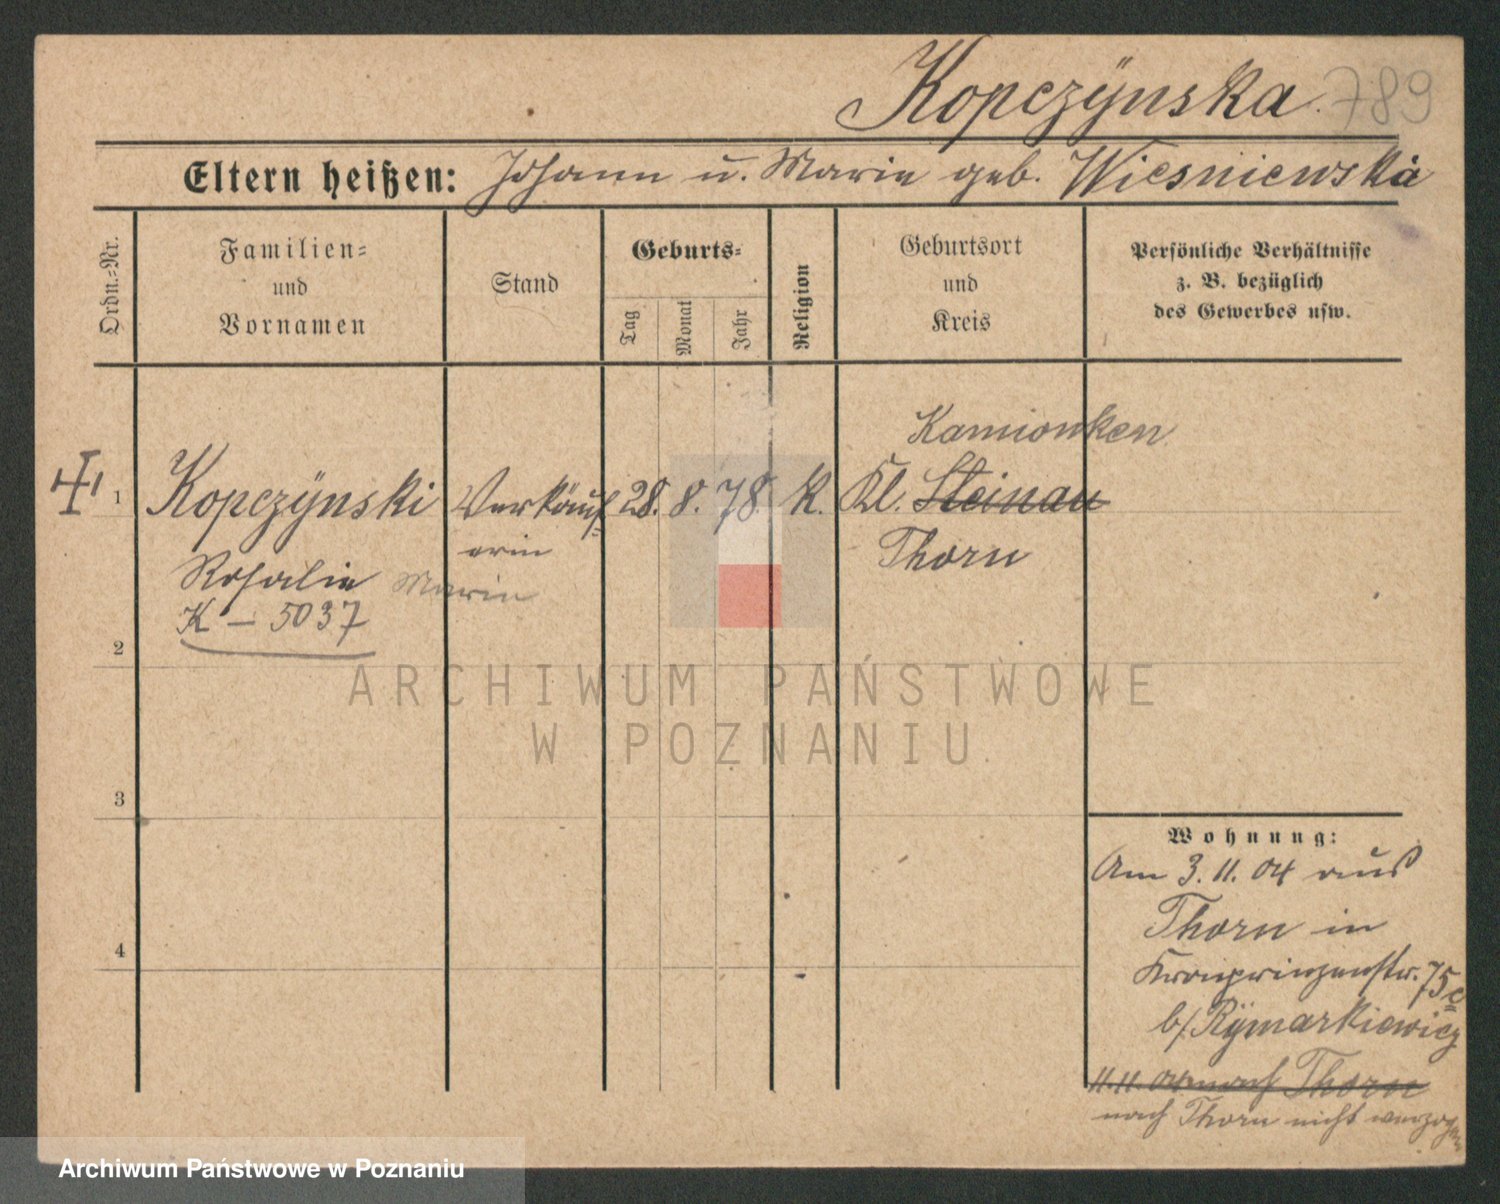 Kopczÿnska. 789
Eltern heißen: Johann u. Marie geb. Wiesniewska
Ordn.=Nr.
Familien=
und
Vornamen
Stand
Geburts=
Tag
Monat
Jahr
Religion
Geburtsort
und
Kreis
Persönliche Verhältnisse
z. B. bezüglich
des Gewerbes usw.
Kamionken
1 Kopczÿnski Verkäuf= 28. 8. 78. K. Kl. Steinau
erin Thorn
Rosalie Marie
K – 5037
2
3
4
Wohnung:
Am 3. 11. 04 aus
Thorn in
Kronprinzenstr. 75c
b/. Rÿmarkiewicz
11. 11. 04 nach Thorn
nach Thorn nicht verzogen
ARCHIWUM PAŃSTWOWE
W POZNANIU
Archiwum Państwowe w Poznaniu